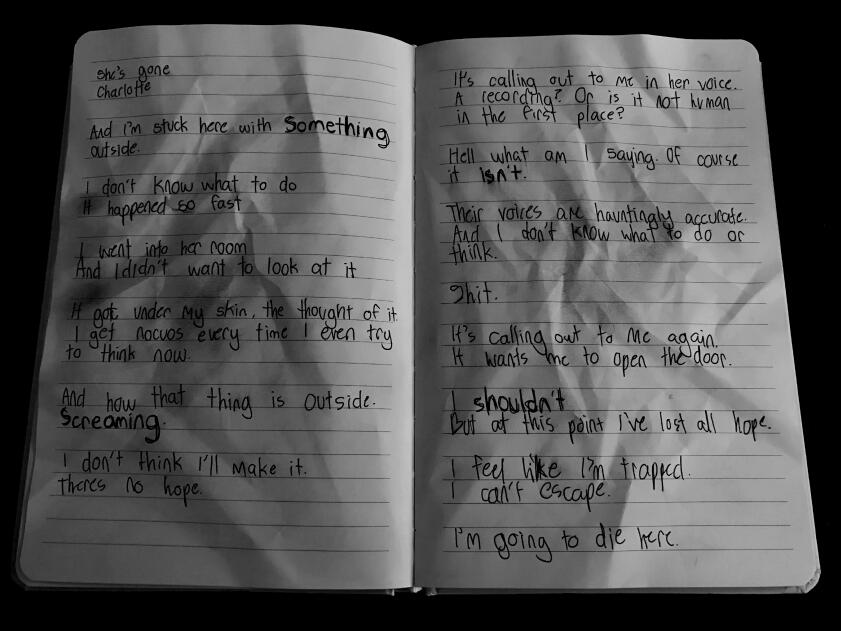 She's gone
Charlotte
And I'm stuck here with Something
outside.
I don't know what to do
It happened so fast
I went into her room
And I didn't want to look at it
It got under my skin, the thought of it.
I get nocuos every time I even try
to think now.
And how that thing is outside.
Screaming.
I don't think I'll make it.
theres no hope.
It's calling out to me in her voice.
A recording? Or is it not human
in the first place?
Hell what am I saying. Of course
it isn't.
Their voices are hauntingly accurate.
And I don't know what to do or
think.
Shit.
It's calling out to me again.
It wants me to open the door.
I shouldn't
But at this point I've lost all hope.
I feel like I'm trapped.
I can't escape.
I'm going to die here.